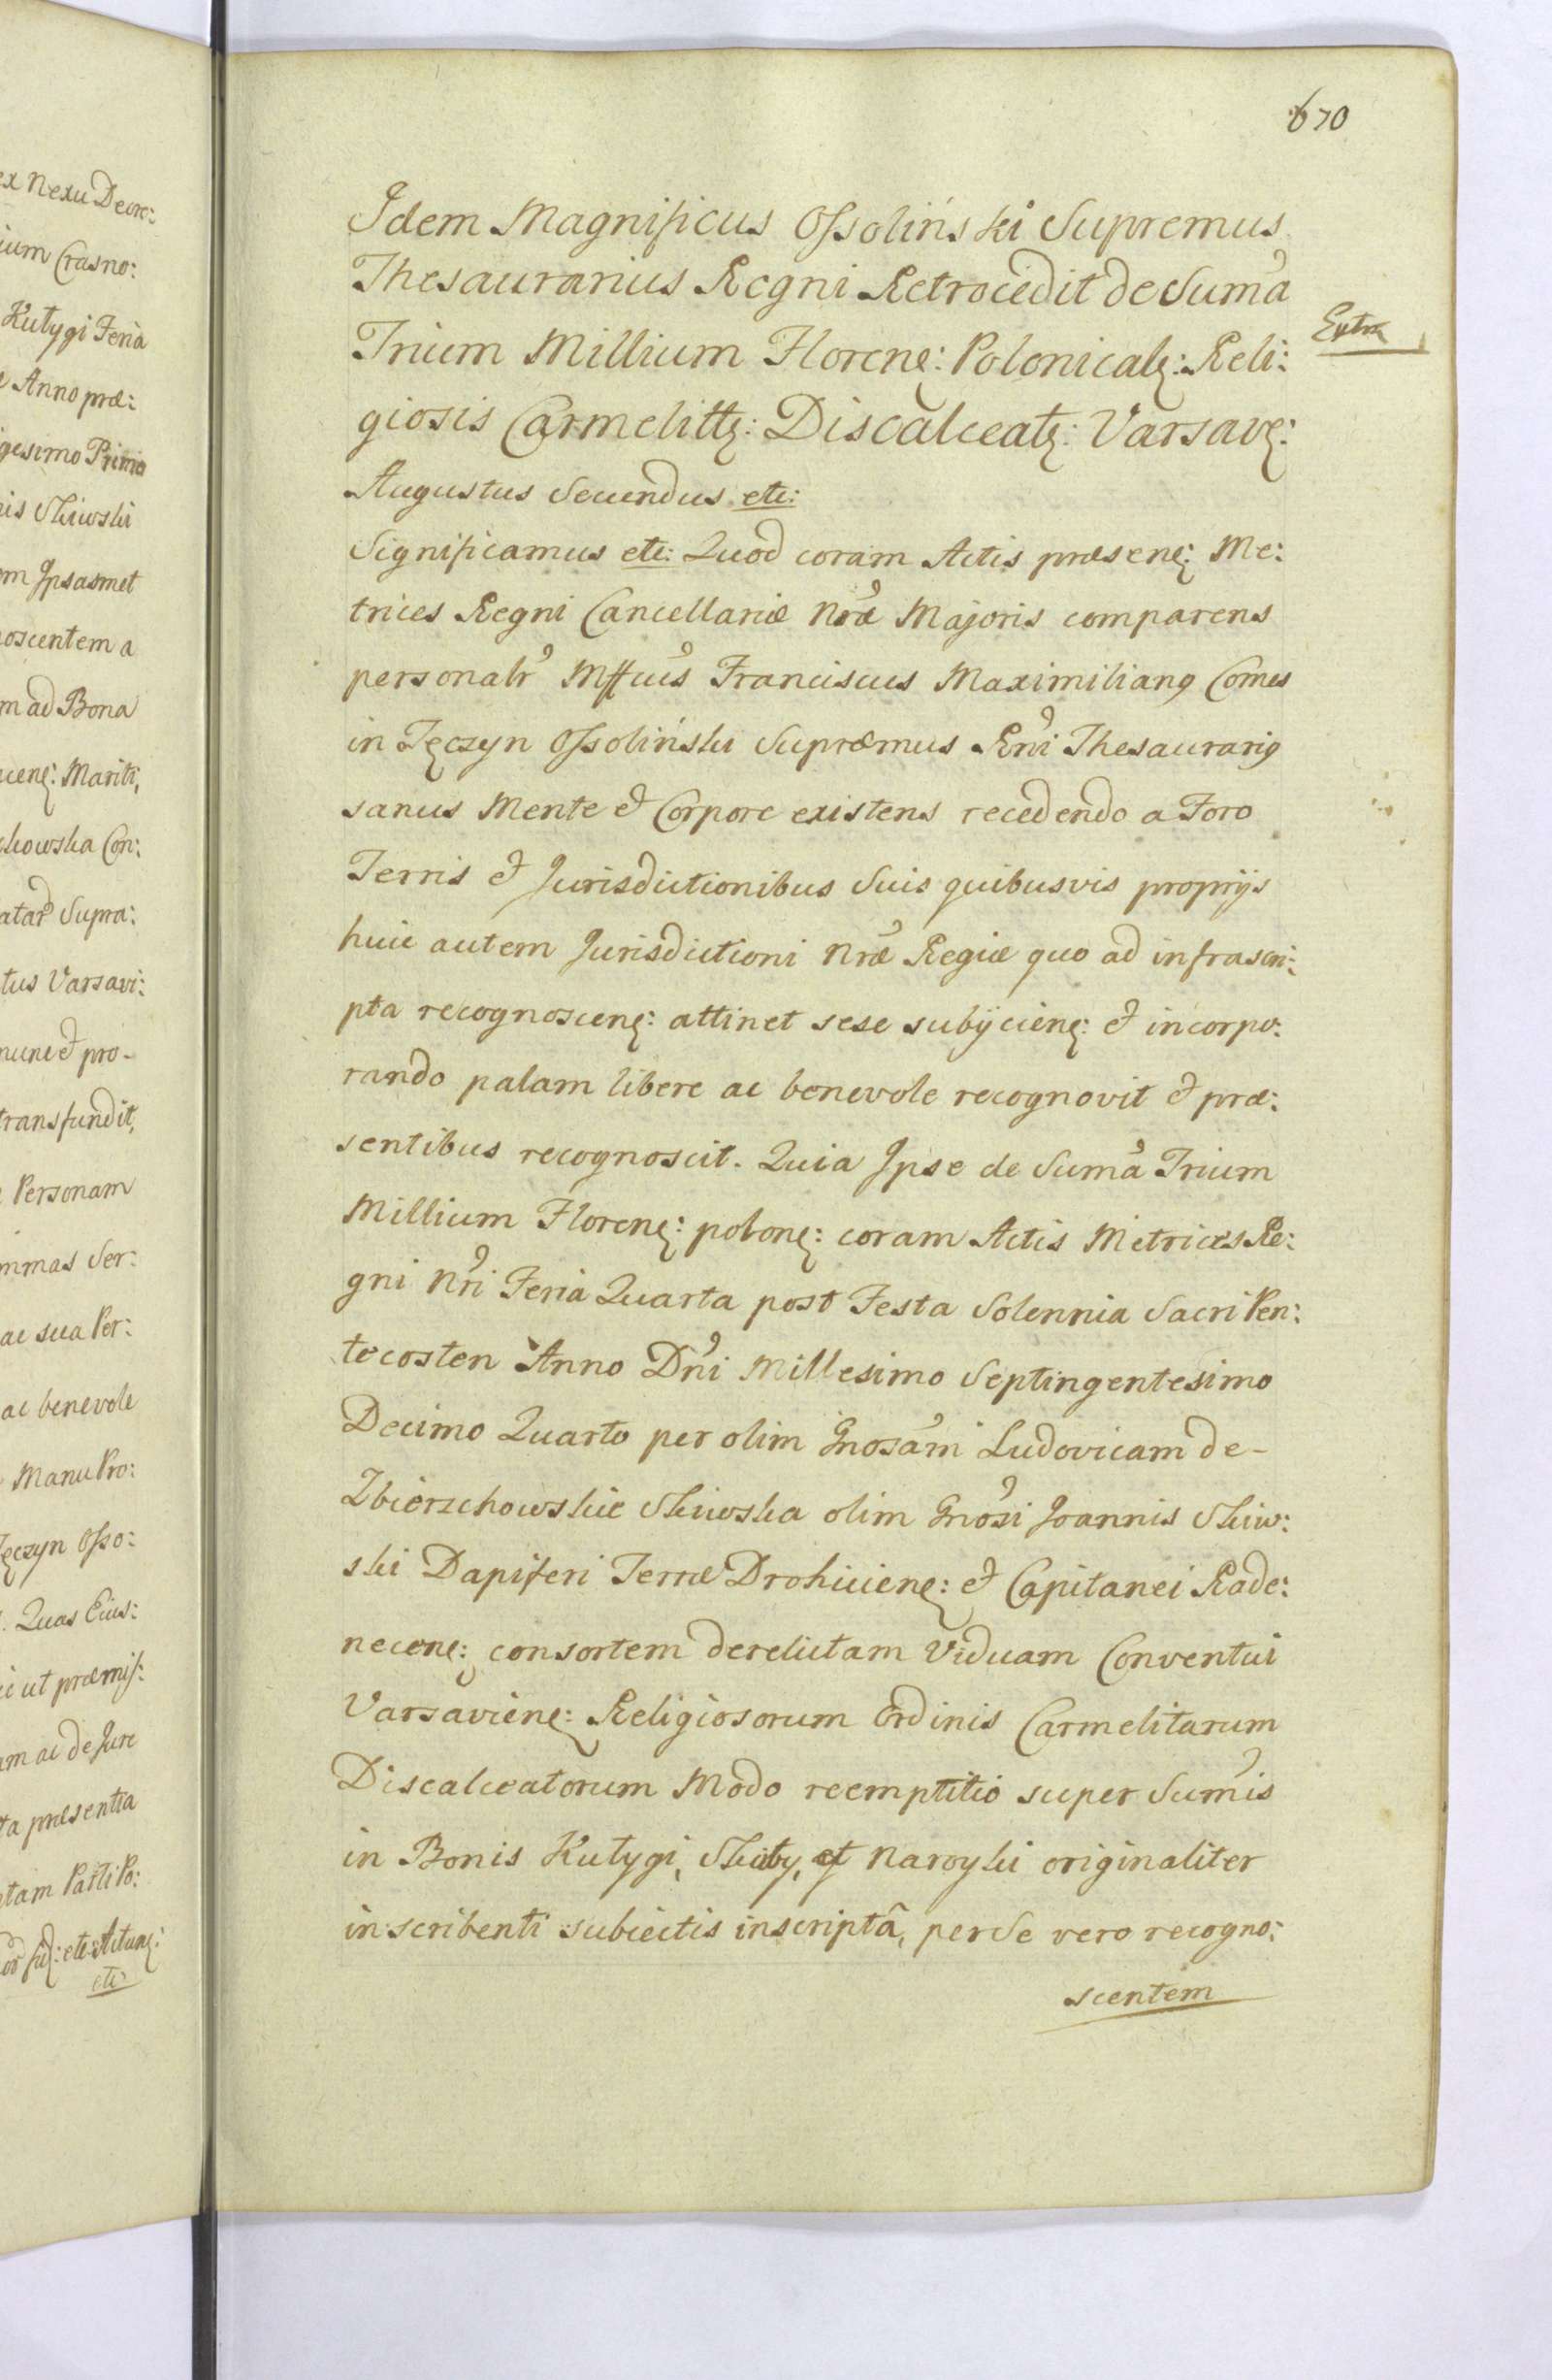 670
Idem Magnificus Ossoliński Supremus
Thesaurarius Regni Retrocedit de Suma
Trium Millium Floren: Polonical: Reli:
Extra
giosis Carmelitt: Discalceat: Varsav:
Augustus Secundus etc:
Significamus etc: Quod coram Actis præsen: Me:
trices Regni Cancellariæ Nræ Majoris comparens
personalr Mffcus Franciscus Maximilianus Comes
in Tęczyn Ossoliński Supræmus Rni Thesaurarius
sanus Mente et Corpore existens recedendo a Foro
Terris et Jurisdictionibus Suis quibusvis proprijs
huic autem Jurisdictioni Nræ Regiæ quo ad infrascri:
pta recognoscen: attinet sese subijcien: et incorpo:
rando palam libere ac benevole recognovit et præ:
sentibus recognoscit. Quia Ipse de Suma Trium
Millium Floren: polon: coram Actis Metrices Re:
gni Nri Feria Quarta post Festa Solennia Sacri Pen:
tecosten Anno Dni Millesimo Septingentesimo
Decimo Quarto per olim Gnosam Ludovicam de-
Zbierzchowskie Skiwska olim Gnosi Joannis Skiw:
ski Dapiferi Terræ Drohicien: et Capitanei Rade:
necen: consortem derelictam Viduam Conventui
Varsavien: Religiosorum Ordinis Carmelitarum
Discalceatorum Modo reemptitio super Sumis
in Bonis Kutygi, Skiby, et Naroyki originaliter
inscribenti subiectis inscriptâ, per Se vero recogno:
scentem
ex Nexu Decre:
ium Crasno:
Kutygi Feria
Anno præ:
gesimo Primo
is Skiwski
m Ipsasmet
noscentem a
m ad Bona
cen: Mariti,
chowska Con:
atar Supra:
tus Varsavi:
nunc et pro-
transfundit,
Personam
mmas Ser:
ac sua Per:
ac benevole
Manu Pro:
ęczyn Osso:
. Quas Eius:
i ut præmis:
am ac de Jure
ta præsentia
tam Parti Po:
etc: Actum:
etc: